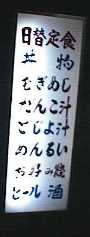 日替定食
丼物
むぎめし
だんご汁
ごじよ汁
めんるい
お好み焼
ビール 酒